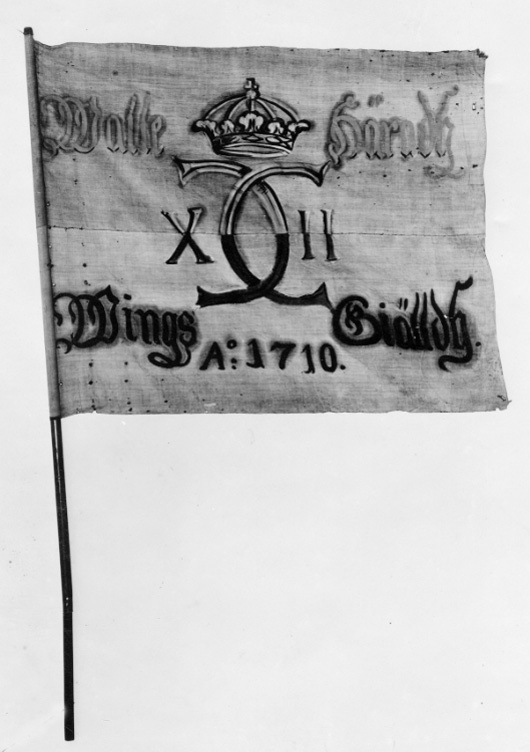 Walle Häradz
X CC II
Wings Giälldz.
A°: 1710.